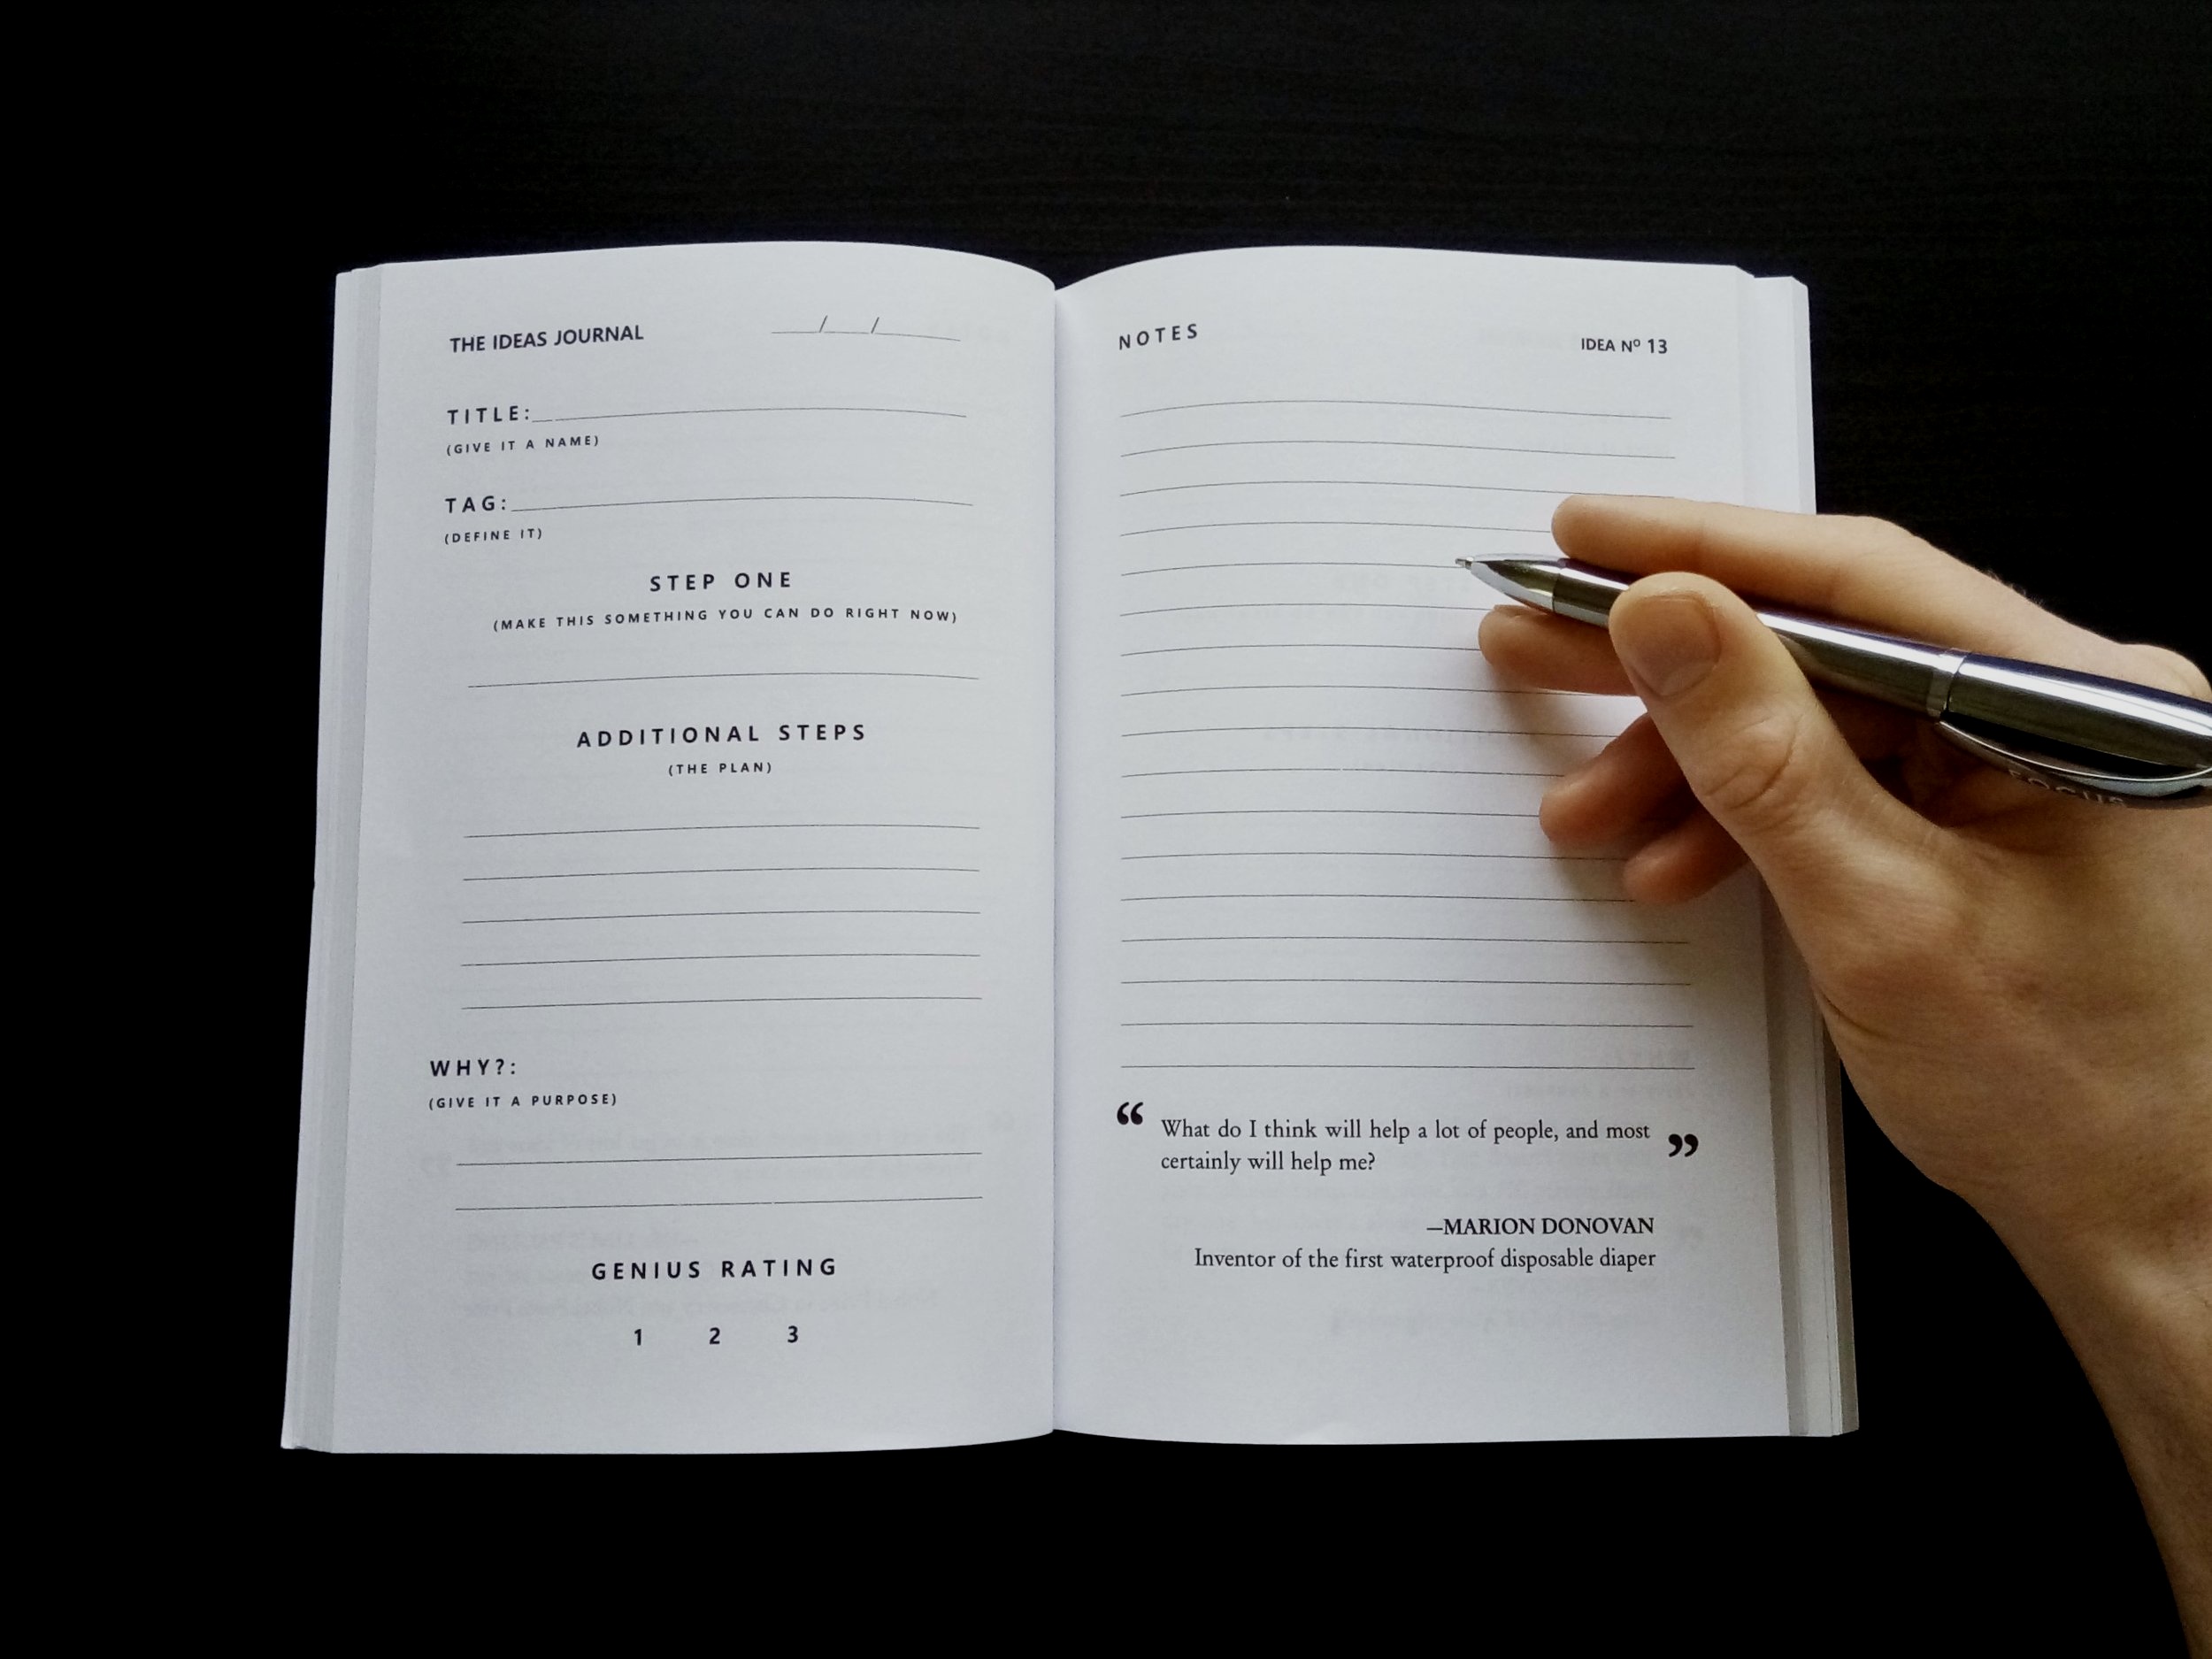 THE IDEAS JOURNAL ____/____/______
TITLE:
(GIVE IT A NAME)
TAG:
(DEFINE IT)
STEP ONE
(MAKE THIS SOMETHING YOU CAN DO RIGHT NOW)
ADDITIONAL STEPS
(THE PLAN)
WHY?:
(GIVE IT A PURPOSE)
GENIUS RATING
1 2 3
NOTES
IDEA Nº 13
“What do I think will help a lot of people, and most
certainly will help me?”
—MARION DONOVAN
Inventor of the first waterproof disposable diaper